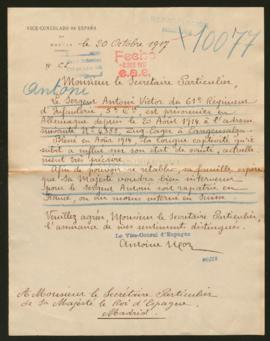 VICE-CONSULADO DE ESPAÑA
BASTIA
le 20 Octobre 1917
10077
Nº
Fecha
Antoni
Monsieur le Secrétaire Particulier
Le Sergent Antoni Victor du 61e Régiment
d'Infanterie, est prisonnier en
Allemagne depuis le 20 Août 1914 à l'adresse
suivante Nº Langensalza
Blessé en Août 1914 sa longue captivité qu'il
subit a influé sur son état de santé, actuelle
ment très précaire.
Afin de pouvoir se rétablir, sa famille espère
que Sa Majesté voudra bien intervenir
pour le Sergent Antoni soit rapatrié en
France, ou du moins interné en Suisse.
Veuillez agréer, Monsieur le Secrétaire Particulier,
l'assurance de mes sentiments distingués.
Le Vice-Consul d'Espagne
Antoine
A Monsieur le Secrétaire Particulier
de Sa Majesté le Roi d'Espagne
Madrid